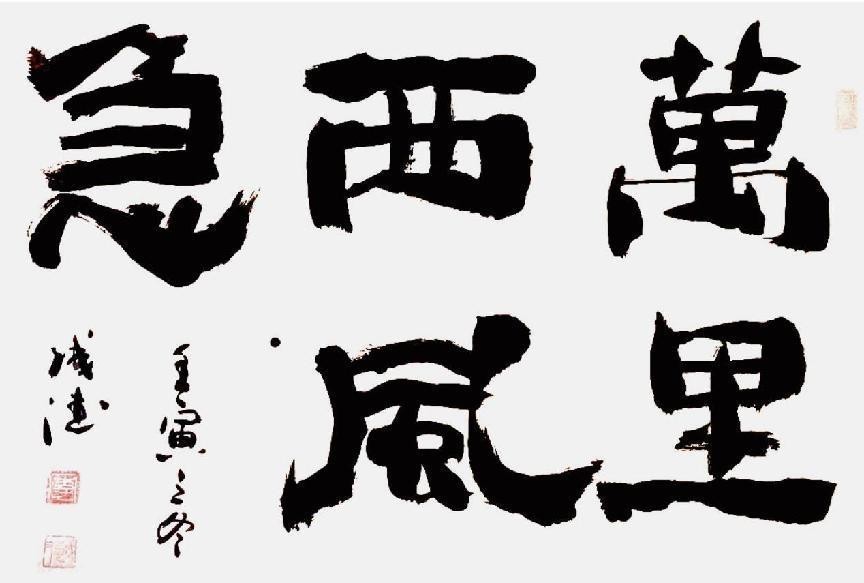 萬里
西風
急
壬寅之冬